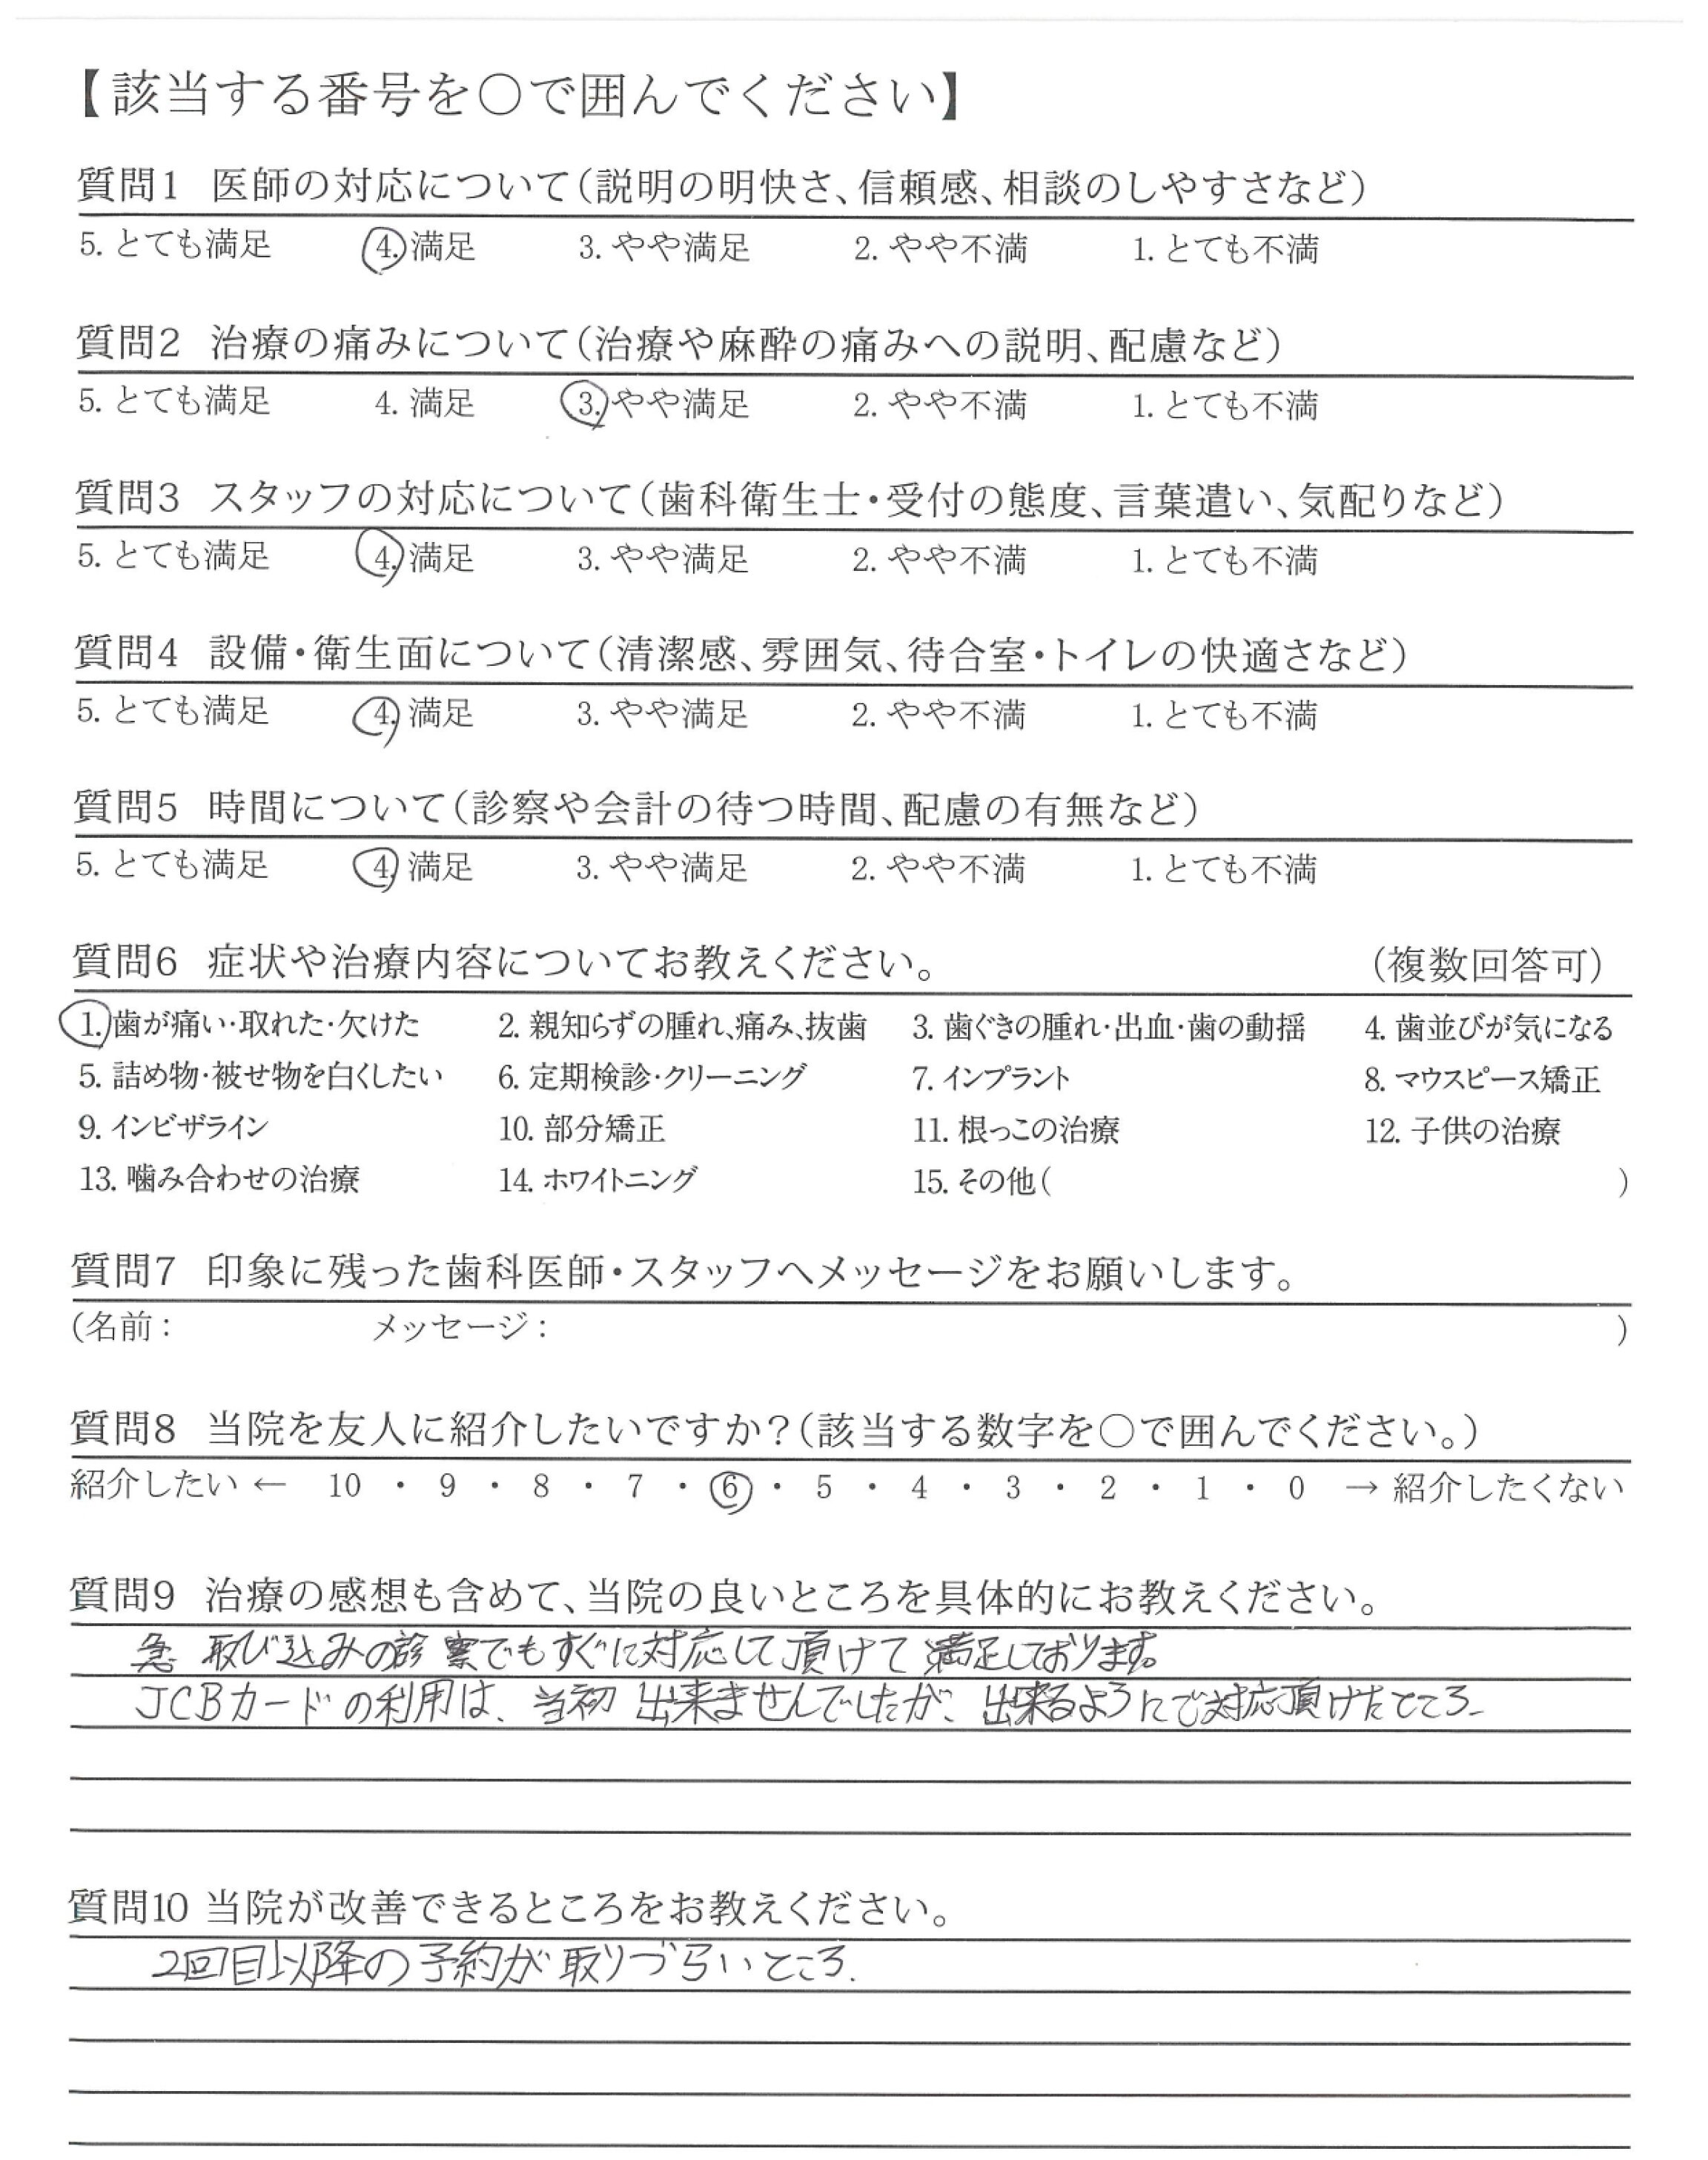 【該当する番号を○で囲んでください】
質問1 医師の対応について(説明の明快さ、信頼感、相談のしやすさなど)
5. とても満足 4. 満足 3. やや満足 2. やや不満 1. とても不満
質問2 治療の痛みについて(治療や麻酔の痛みへの説明、配慮など)
5. とても満足 4. 満足 3. やや満足 2. やや不満 1. とても不満
質問3 スタッフの対応について(歯科衛生士・受付の態度、言葉遣い、気配りなど)
5. とても満足 4. 満足 3. やや満足 2. やや不満 1. とても不満
質問4 設備・衛生面について(清潔感、雰囲気、待合室・トイレの快適さなど)
5. とても満足 4. 満足 3. やや満足 2. やや不満 1. とても不満
質問5 時間について(診察や会計の待つ時間、配慮の有無など)
5. とても満足 4. 満足 3. やや満足 2. やや不満 1. とても不満
質問6 症状や治療内容についてお教えください。 (複数回答可)
1. 歯が痛い・取れた・欠けた 2. 親知らずの腫れ、痛み、抜歯 3. 歯ぐきの腫れ・出血・歯の動揺 4. 歯並びが気になる
5. 詰め物・被せ物を白くしたい 6. 定期検診・クリーニング 7. インプラント 8. マウスピース矯正
9. インビザライン 10. 部分矯正 11. 根っこの治療 12. 子供の治療
13. 噛み合わせの治療 14. ホワイトニング 15. その他( )
質問7 印象に残った歯科医師・スタッフへメッセージをお願いします。
(名前: メッセージ: )
質問8 当院を友人に紹介したいですか?(該当する数字を○で囲んでください。)
紹介したい ← 10 ・ 9 ・ 8 ・ 7 ・ 6 ・ 5 ・ 4 ・ 3 ・ 2 ・ 1 ・ 0 → 紹介したくない
質問9 治療の感想も含めて、当院の良いところを具体的にお教えください。
急 取び込みの診察でもすぐに対応して頂けて満足しております。
JCBカードの利用は、当初出来ませんでしたが、出来るようにご対応頂けたところ
質問10 当院が改善できるところをお教えください。
2回目以降の予約が取りづらいところ.